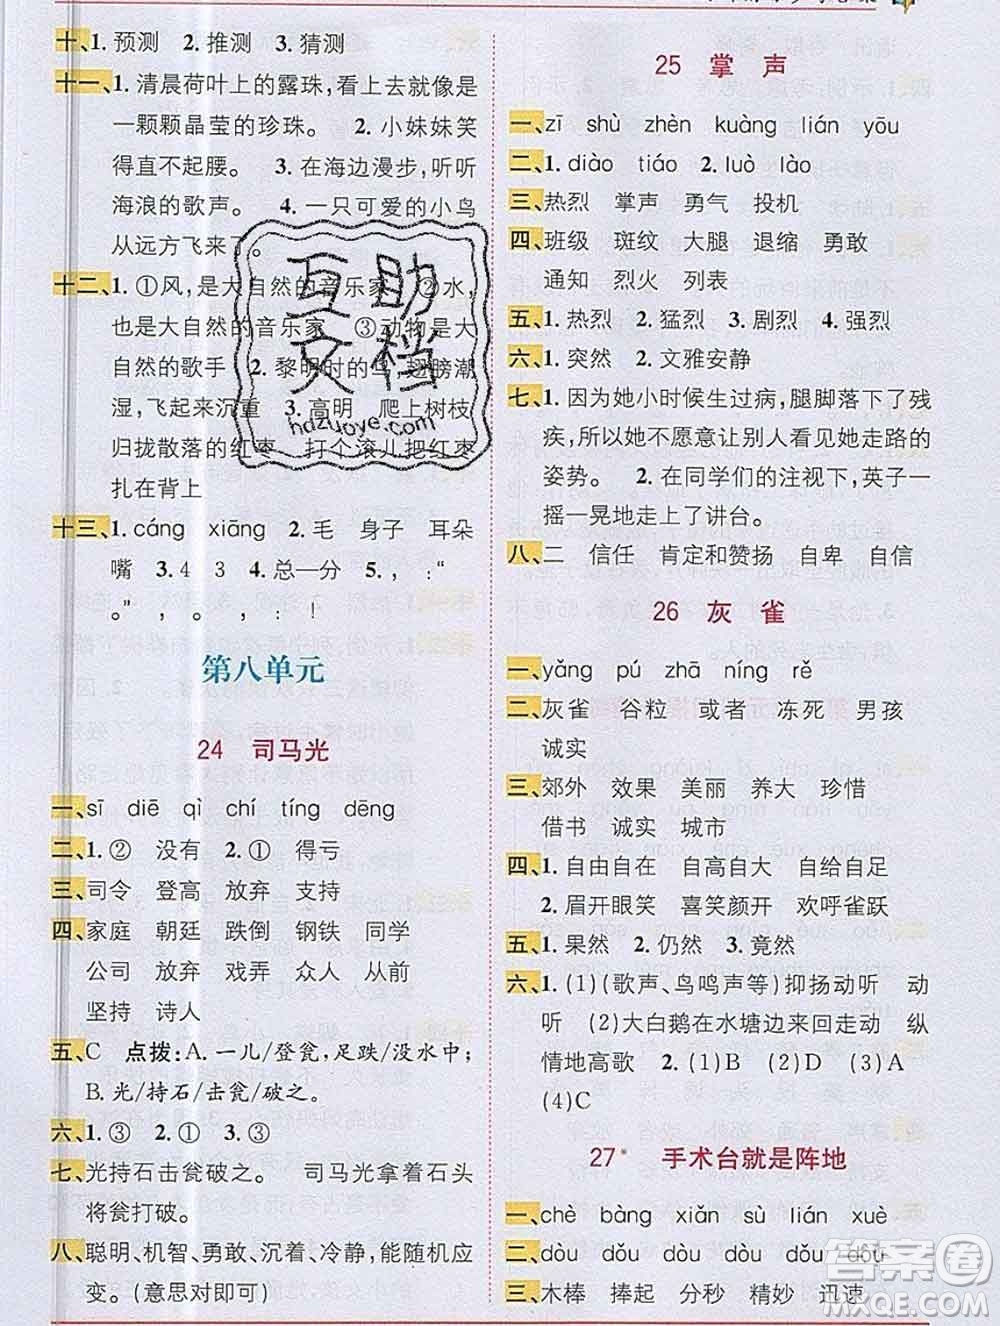 十、1. 预测 2. 推测 3. 猜测
十一、1. 清晨荷叶上的露珠,看上去就像是
一颗颗晶莹的珍珠。 2. 小妹妹笑
得直不起腰。 3. 在海边漫步,听听
海浪的歌声。 4. 一只可爱的小鸟
从远方飞来了。
十二、1. ①风,是大自然的音乐家 ②水,
也是大自然的音乐家 ③动物是大
自然的歌手 2. 黎明时的鸟,翅膀潮
湿,飞起来沉重 3. 高明 爬上树枝
归拢散落的红枣 打个滚儿把红枣
扎在背上
十三、1. cáng xiāng 2. 毛 身子 耳朵
嘴 3. 4 3 4. 总—分 5. , :“
。” 。 , !
第八单元
24 司马光
一、sī diē qì chí tíng dēng
二、1. ② 没有 2. ① 得亏
三、司令 登高 放弃 支持
四、家庭 朝廷 跌倒 钢铁 同学
公司 放弃 弄戏 众人 从前
坚持 诗人
五、C 点拨:A. 一儿/登瓮,足跌/没水中;
B. 光/持石/击瓮/破之。
六、1. ③ 2. ① 3. ③
七、光持石击瓮破之。 司马光拿着石头
将瓮打破。
八、聪明、机智、勇敢、沉着、冷静,能随机应
变。(意思对即可)
25 掌声
一、zī shù zhèn kuàng lián yōu
二、1. diào tiáo 2. luò lào
三、热烈 掌声 勇气 投机
四、班级 斑纹 大腿 退缩 勇敢
通知 烈火 列表
五、1. 热烈 2. 猛烈 3. 剧烈 4. 强烈
六、1. 突然 2. 文雅安静
七、1. 因为她小时候生过病,腿脚落下了残
疾,所以她不愿意让别人看见她走路的
姿势。 2. 在同学们的注视下,英子一
摇一晃地走上了讲台。
八、二 信任 肯定和赞扬 自卑 自信
26 灰雀
一、yǎng pú zhā níng rě
二、灰雀 谷粒 或者 冻死 男孩
诚实
三、郊外 效果 美丽 养大 珍惜
借书 诚实 城市
四、1. 自由自在 自高自大 自给自足
2. 眉开眼笑 喜笑颜开 欢呼雀跃
五、1. 果然 2. 仍然 3. 竟然
六、1. (1)(歌声、鸟鸣声等)抑扬动听 动
听 (2)大白鹅在水塘边来回走动 纵
情地高歌 2. (1)B (2)D (3)A
(4)C
27* 手术台就是阵地
一、chè bàng xiǎn sù lián xuè
二、dòu dǒu dòu dǒu dòu dòu
三、木棒 捧起 分秒 精妙 迅速
互助
文档
hdzuoye.com
答案圈
MXQE.COM